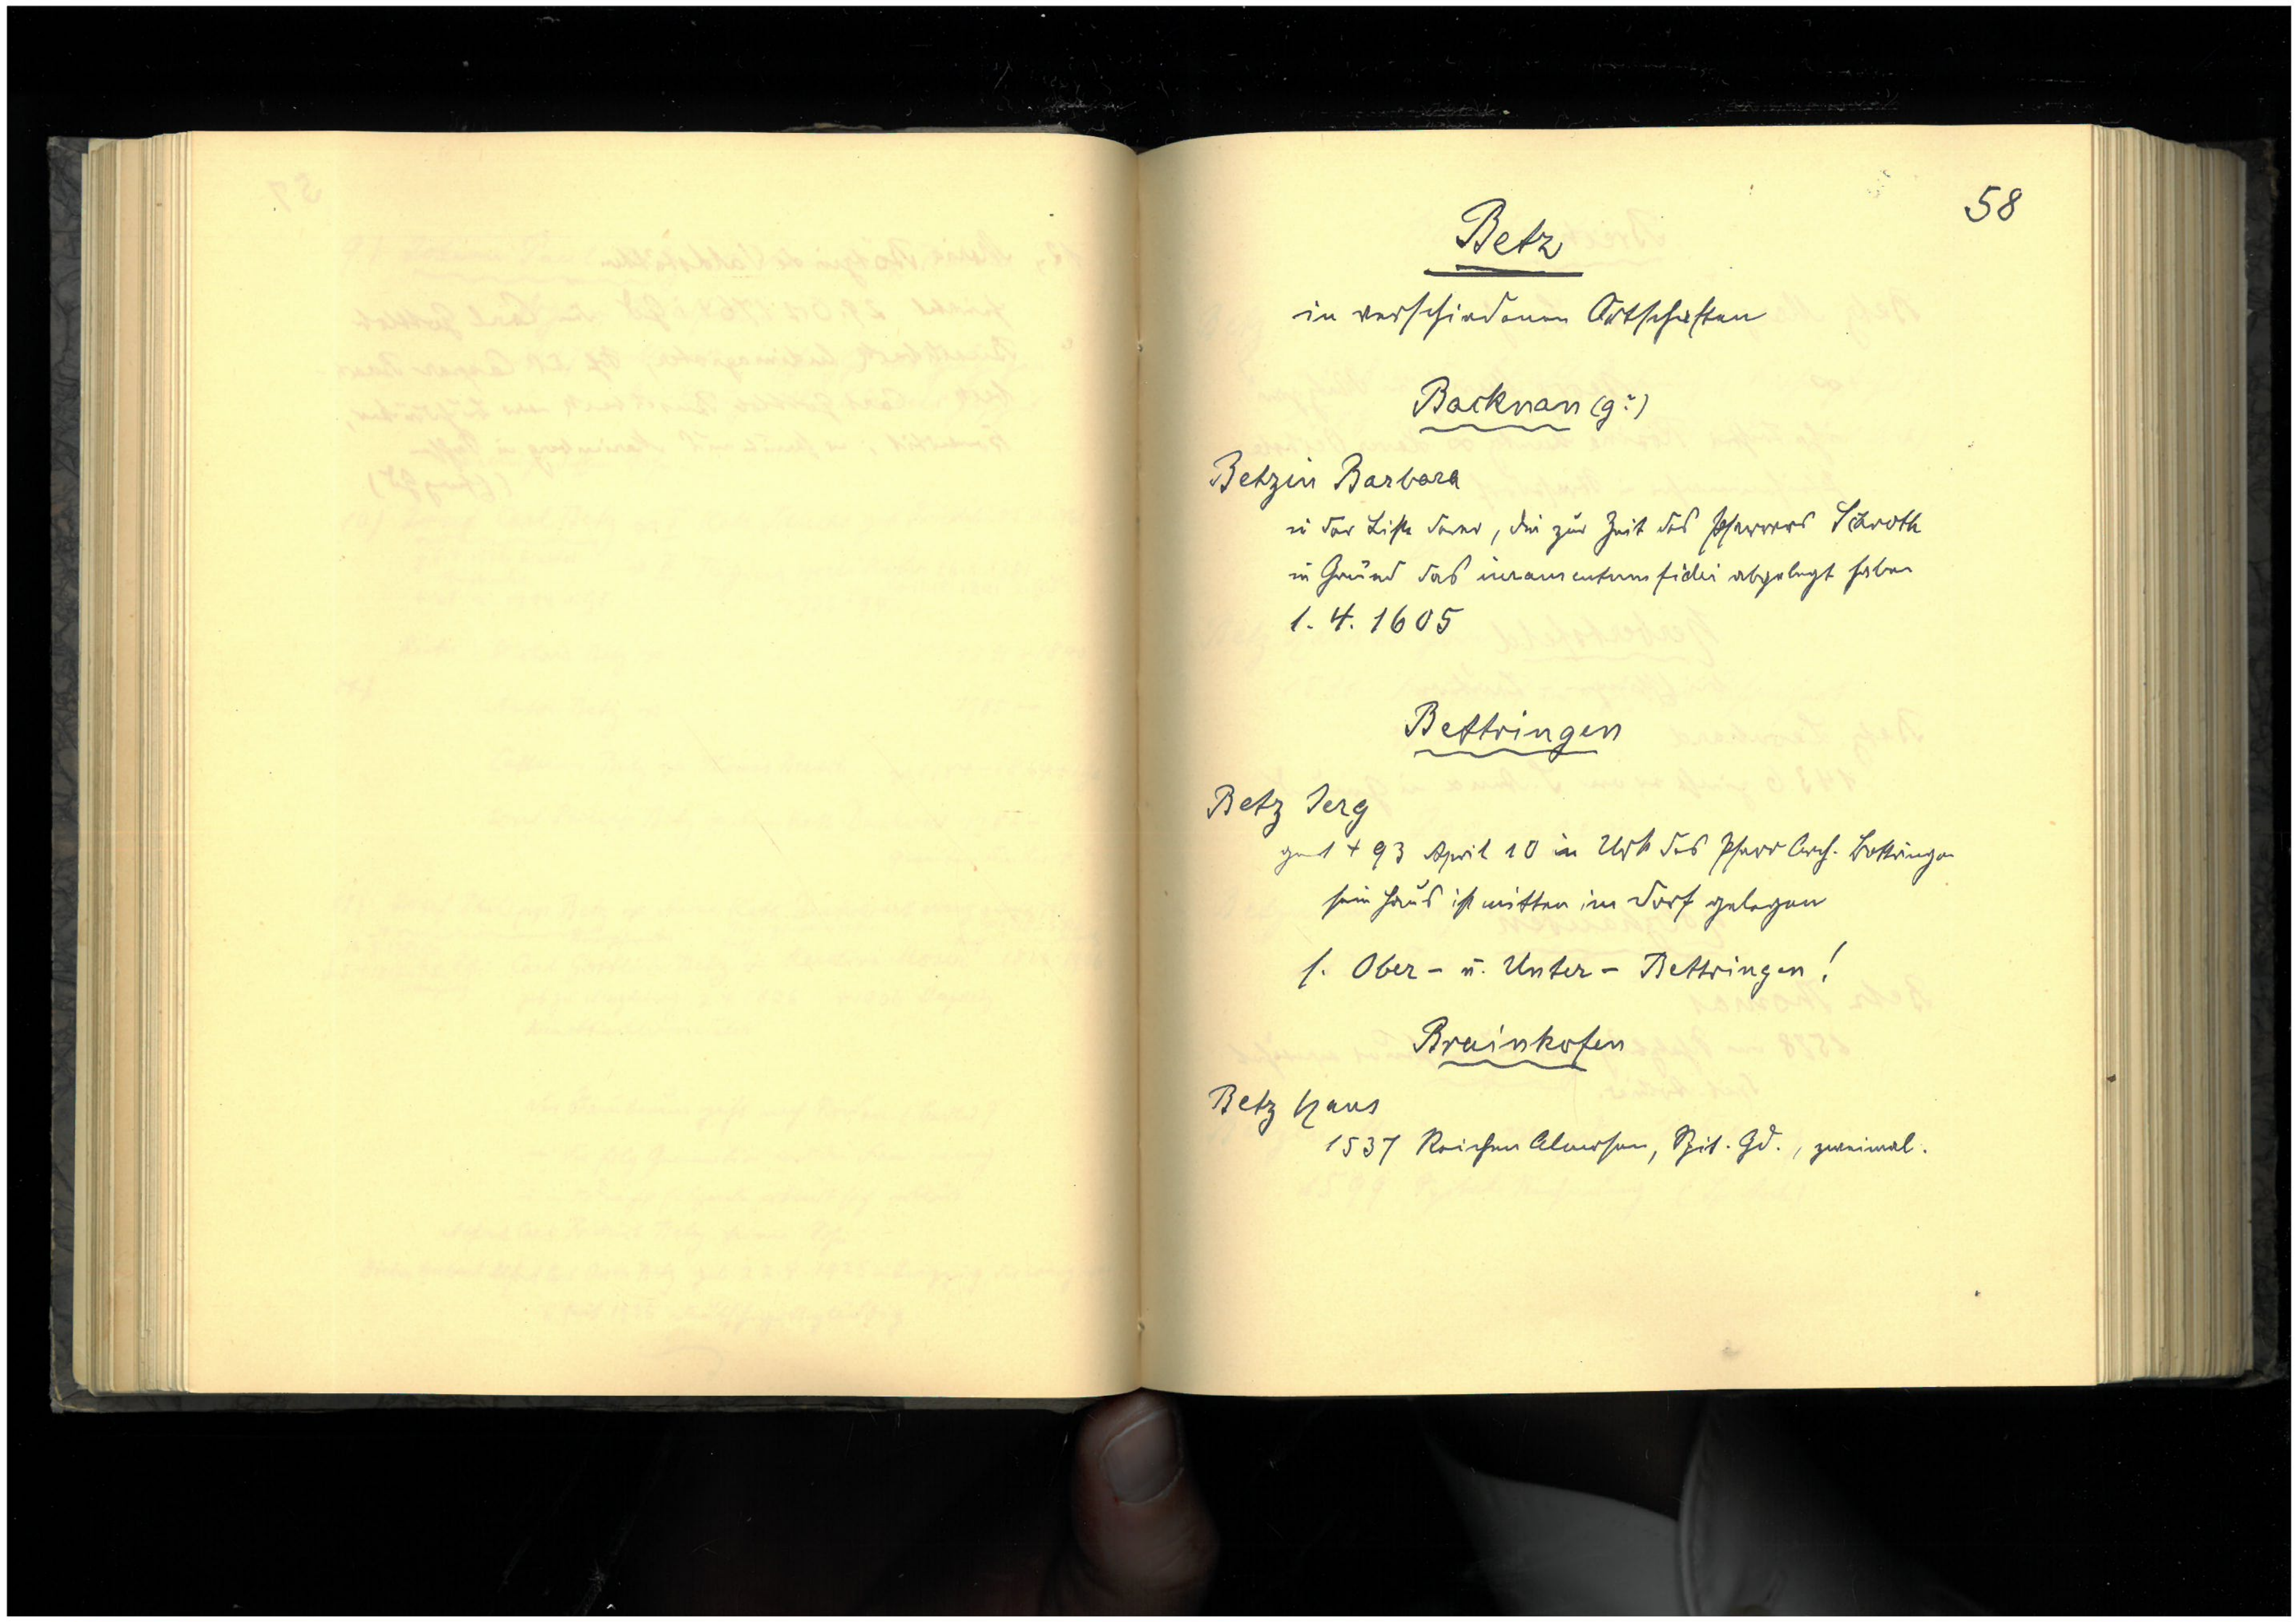 58
Betz
in verschiedenen Ortschaften
Backnan (g?)
Betzin Barbara
in der Liste derer, die zur Zeit des Pfarrers Schroth
in Gmünd das iuramentum fidei abgelegt haben
1. 4. 1605
Bettringen
Betz Jerg
93 April 10 in Urk des Pfarr Arch. Bettringen
sein Haus ist mitten im Dorf gelegen
s. Ober- u. Unter- Bettringen!
Brainkofen
Betz Hans
1537 Reichen Almosen, Spit. Gd., zweimal.